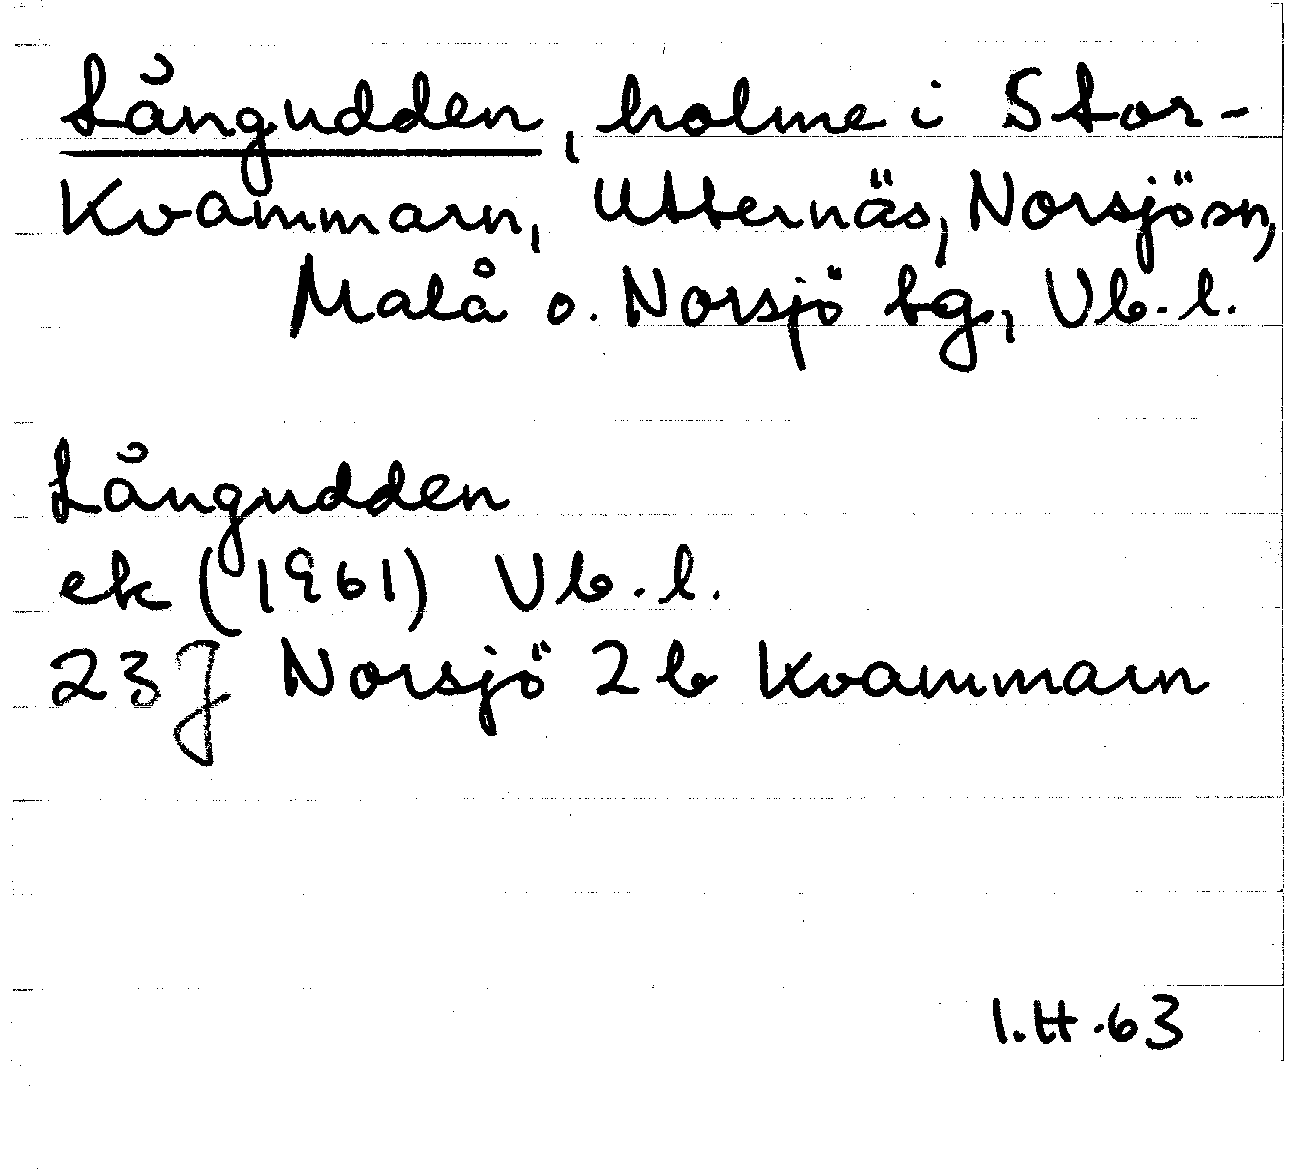 Långudden, holme i Stor-
Kvammarn, Utternäs, Norsjö sn,
Malå o. Norsjö tg, Vb. l.
Långudden
ek (1961) Vb. l.
23 J Norsjö 2 b Kvammarn
I.H.63